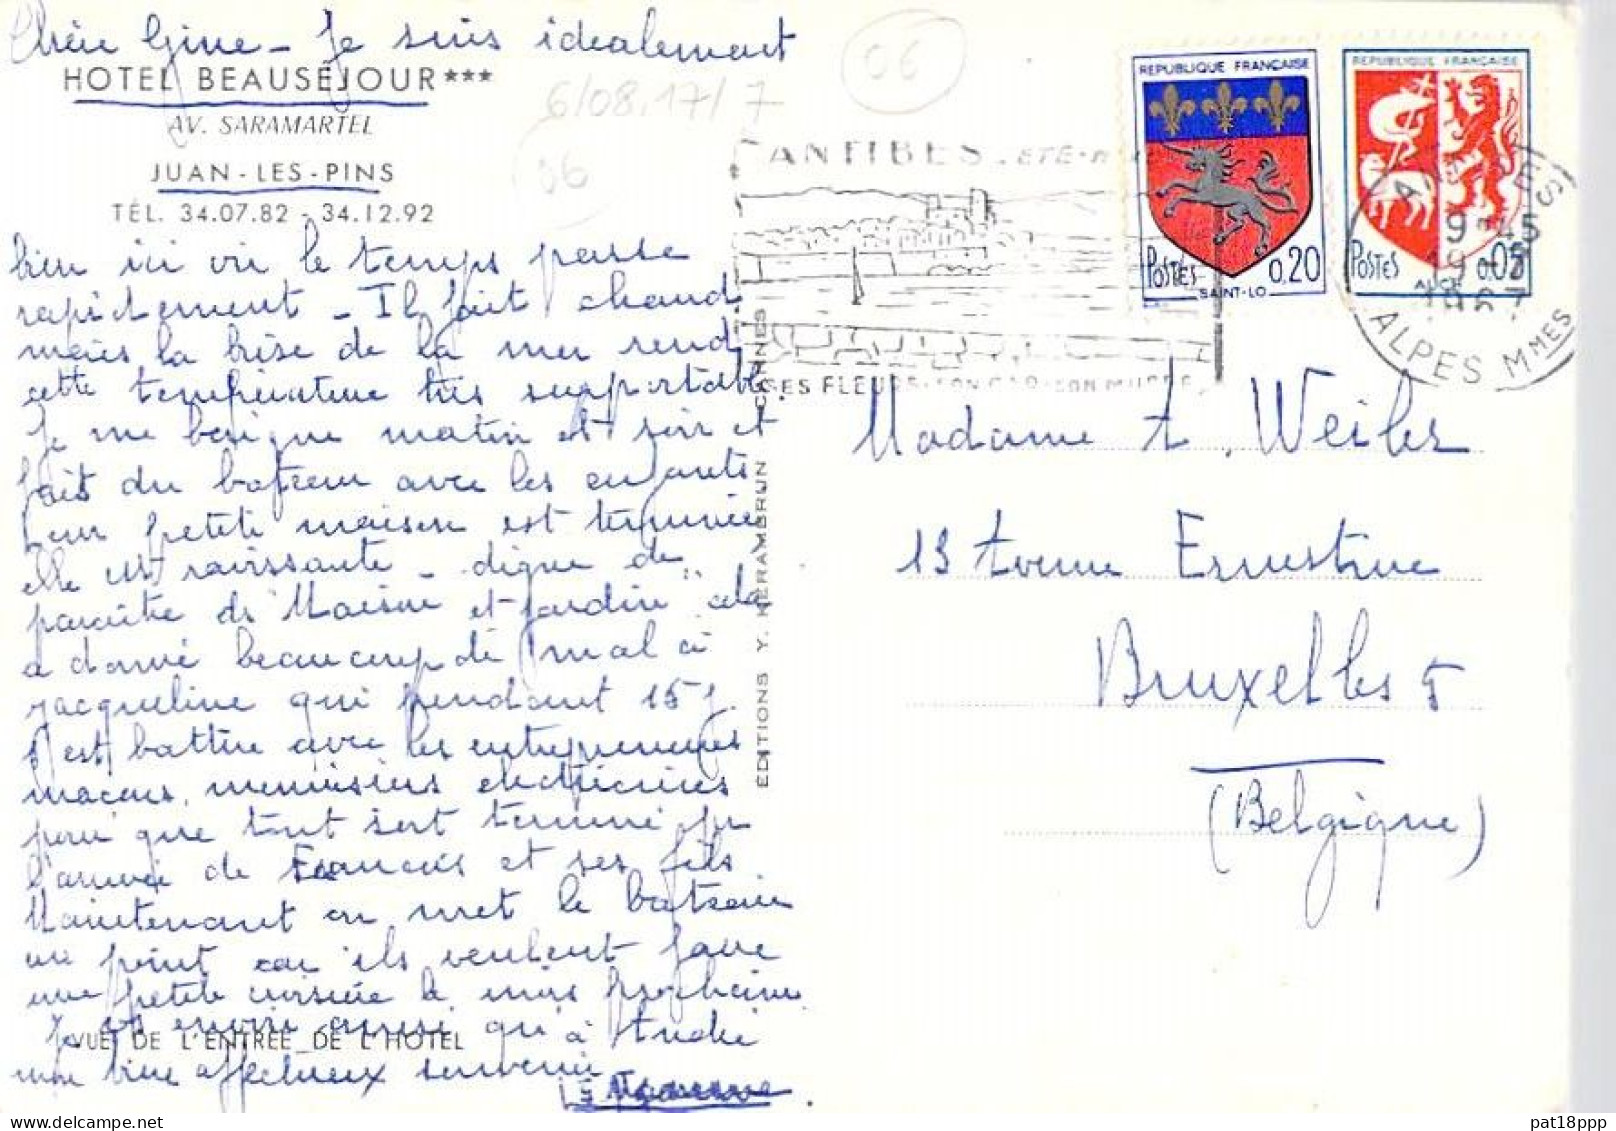 Chère Gine - Je suis idéalement
HOTEL BEAUSÉJOUR***
AV. SARAMARTEL
JUAN-LES-PINS
TÉL. 34.07.82 - 34.12.92
bien ici où le temps passe
rapidement - Il fait chaud
mais la brise de la mer rend
cette température très supportable
Je me baigne matin et soir et
fais du bateau avec les enfants
Leur petite maison est terminée
elle est ravissante - digne de
paraître ds "Maison et Jardin" cela
a donné beaucoup de mal à
Jacqueline qui pendant 15 j.
s'est battue avec les entrepreneurs
macons, menuisiers électriciens
pour que tout soit terminé pr
l'arrivée de François et ses fils
Maintenant on met le bateau
au point car ils veulent faire
une petite croisière le mois prochain
Je vs envoie ainsi qu'à André
VUE DE L'ENTRÉE DE L'HÔTEL
mon bien affectueux souvenir
6/08.17/7
06
06
ÉDITIONS Y. HERAMBRUN CANNES
ANTIBES - ÉTÉ -
SES FLEURS - SON CAP - SON MUSÉE
REPUBLIQUE FRANÇAISE
POSTES
0,20
SAINT-LO
REPUBLIQUE FRANÇAISE
POSTES
0.05
AUCH
ANTIBES
9 45
19 - 7
1967
ALPES MMES
Madame A. Weiler
13 Avenue Ernestine
Bruxelles 5
(Belgique)
delcampe.net
pat18ppp